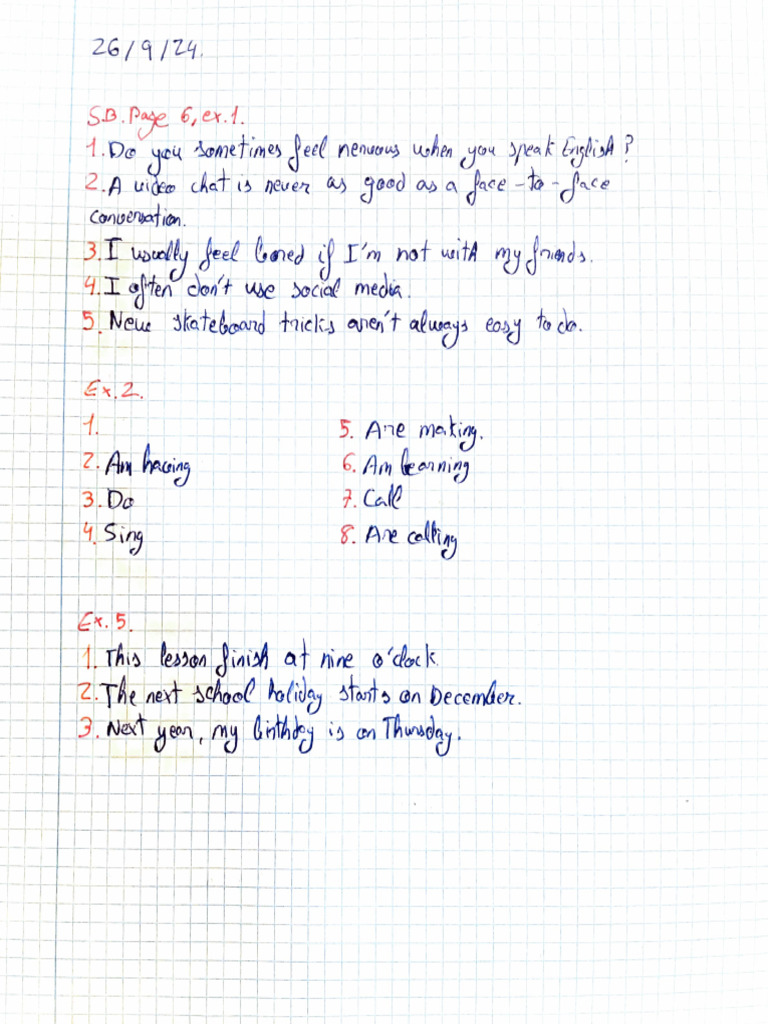 26/9/24.
SB. Page 6, ex.1.
1. Do you sometimes feel nervous when you speak English?
2. A video chat is never as good as a face-to-face
conversation.
3. I usually feel bored if I'm not with my friends.
4. I often don't use social media.
5. New skateboard tricks aren't always easy to do.
Ex.2.
1.
5. Are making.
2. Am having
6. Am learning
3. Do
7. Call
4. Sing
8. Are calling
Ex.5.
1. This lesson finish at nine o'clock
2. The next school holiday starts on December.
3. Next year, my birthday is on Thursday.